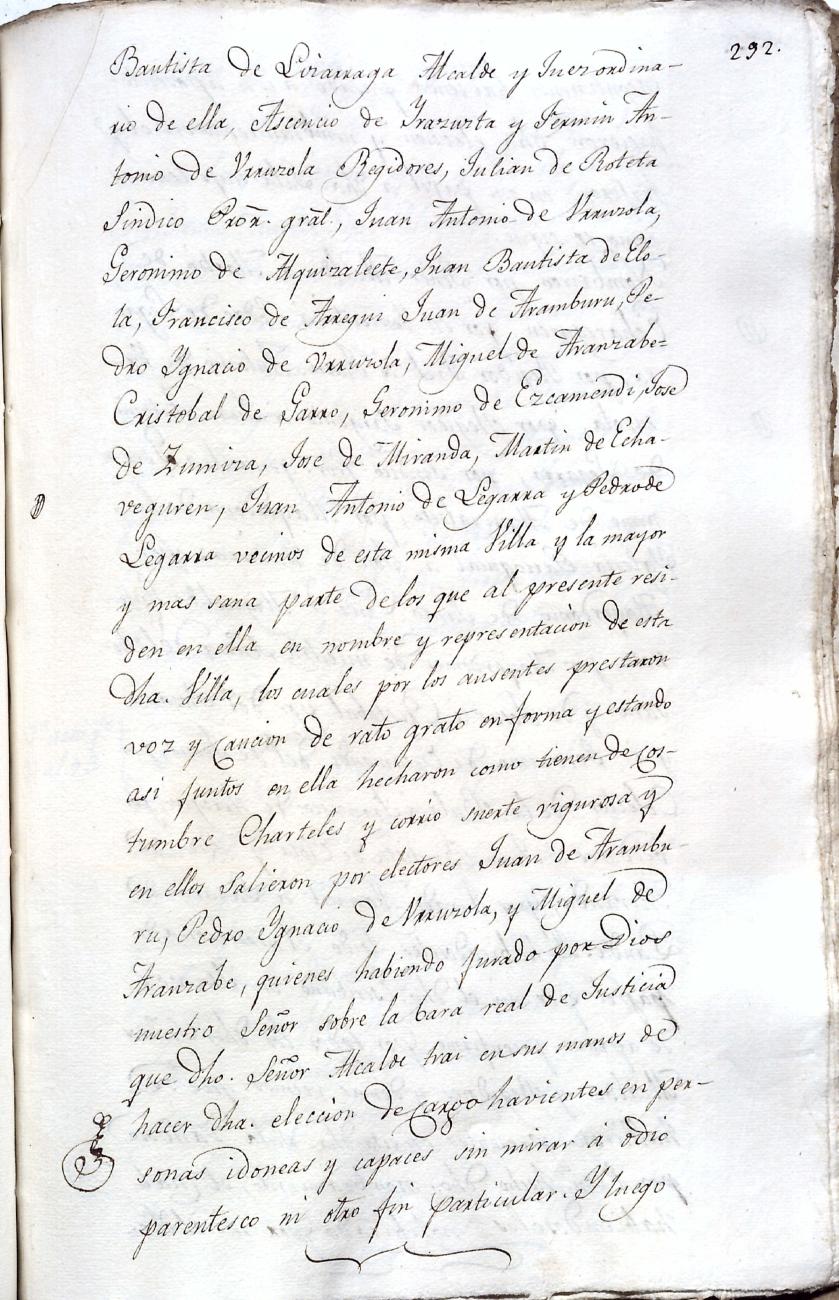 292.
Bautista de Liziarraga Alcalde y Juez ordina-
rio de ella, Ascencio de Yrazuzta y Fermin An-
tonio de Urruzola Regidores, Julian de Roteta
Sindico Pror. gral., Juan Antonio de Urruzola,
Geronimo de Alquizalecte, Juan Bautista de Elo-
la, Francisco de Arregui Juan de Aramburu, Pe-
dro Ygnacio de Urruzola, Miguel de Aranzabe-
Cristobal de Garro, Geronimo de Ezcamendi, Jose
de Zumiza, Jose de Miranda, Martin de Echa-
veguren, Juan Antonio de Legarra y Pedro de
Legarra vecinos de esta misma Villa y la mayor
y mas sana parte delos que al presente resi-
den en ella en nombre y representacion de esta
dha. Villa, los cuales por los ausentes prestaron
voz y caucion de rato grato en forma y estando
asi juntos en ella hecharon como tienen de cos-
tumbre Charteles y corrio suerte vigurosa y
en ellos salieron por electores Juan de Arambu-
ru, Pedro Ygnacio de Urruzola, y Miguel de
Aranzabe, quienes habiendo jurado por Dios
nuestro Señor sobre la bara real de Justicia
que dho. Señor Alcalde trai en sus manos de
hacer dha. eleccion de cargo havientes en per-
sonas idoneas y capaces sin mirar á odio
parentesco ni otro fin particular. Y luego